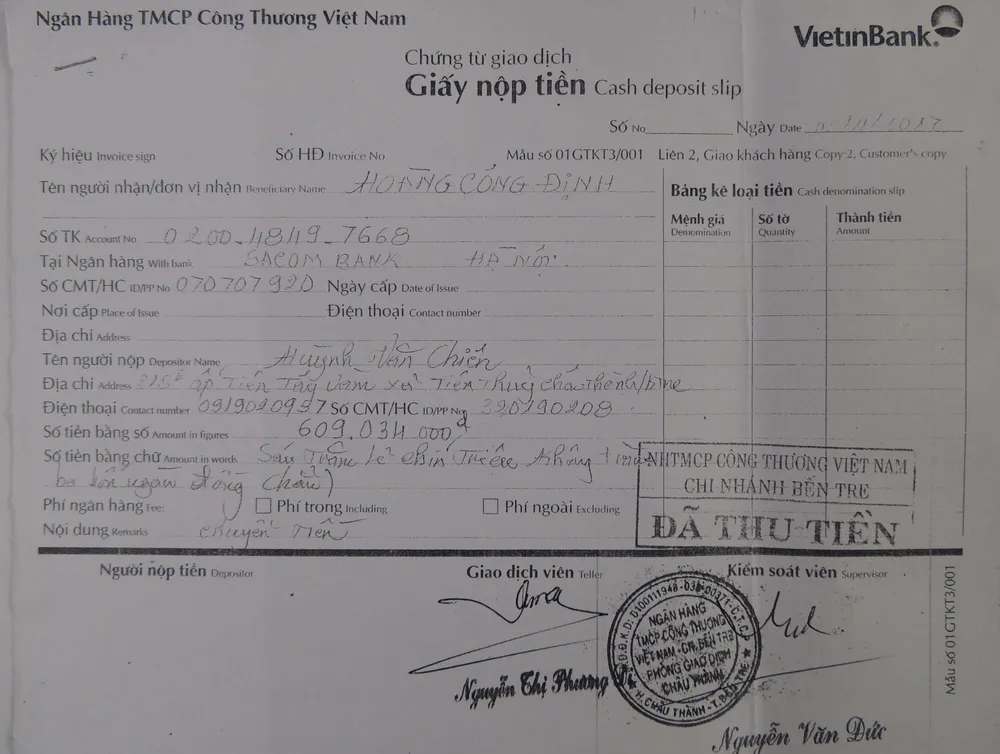 Ngân Hàng TMCP Công Thương Việt Nam
VietinBank
Chứng từ giao dịch
Giấy nộp tiền Cash deposit slip
Số No Ngày Date /11/2017
Ký hiệu Invoice sign Số HĐ Invoice No Mẫu số 01GTKT3/001 Liên 2, Giao khách hàng Copy 2, Customer's copy
Tên người nhận/đơn vị nhận Beneficiary Name HOÀNG CÔNG ĐỊNH
Số TK Account No 0200_4849_7668
Tại Ngân hàng With bank SACOM BANK HÀ NỘI.
Số CMT/HC ID/PP No 070707920 Ngày cấp Date of Issue
Nơi cấp Place of Issue Điện thoại Contact number
Địa chỉ Address
Tên người nộp Depositor Name Huỳnh Văn Chiến
Địa chỉ Address ấp Tiên Tây Vàm xã Tiên Thủy Châu Thành/btre
Điện thoại Contact number 0919020957 Số CMT/HC ID/PP No 320190208
Số tiền bằng số Amount in figures 609.034.000đ
Số tiền bằng chữ Amount in words Sáu Trăm lẻ chín Triệu không trăm
ba bốn ngàn đồng chẵn)
Phí ngân hàng Fee: Phí trong Including Phí ngoài Excluding
Nội dung Remarks chuyển Tiền
Bảng kê loại tiền Cash denomination slip
Mệnh giá Denomination Số tờ Quantity Thành tiền Amount
NHTMCP CÔNG THƯƠNG VIỆT NAM
CHI NHÁNH BẾN TRE
ĐÃ THU TIỀN
Người nộp tiền Depositor Giao dịch viên Teller Kiểm soát viên Supervisor
NGÂN HÀNG
TMCP CÔNG THƯƠNG
VIỆT NAM - CN. BẾN TRE
PHÒNG GIAO DỊCH
CHÂU THÀNH
H. CHÂU THÀNH - T. BẾN TRE
Nguyễn Thị Phương
Nguyễn Văn Đức
Mẫu số 01GTKT3/001